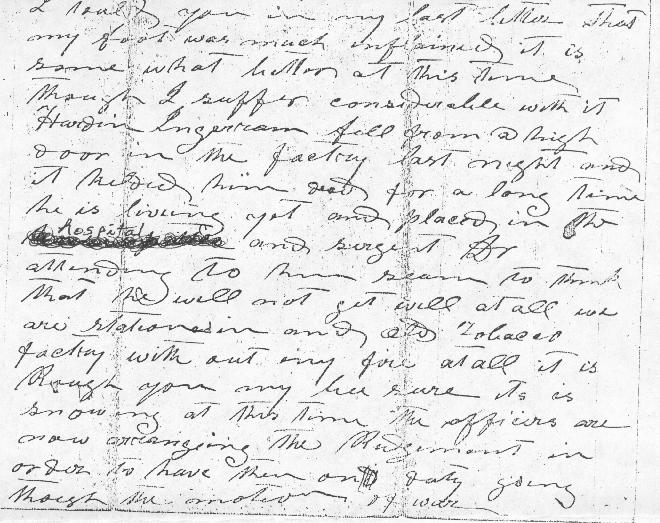 I told you in my last letter that
my foot was much inflamed it is
some what better at this time
though I suffer considerable with it
Hardin Ingerram fell from a high
door in the factry last night and
it him ded for a long time
he is living yet and placed in the
hospital and surgent Dr
attending to him seam to think
that he will not get well at all we
are stationes in and old Tobacco
factry with out any fire atall it is
Rough you my bee sure its is
snowing at this time the officers are
now arranging the Rugement in
order to have them on duty going
though the motion of war